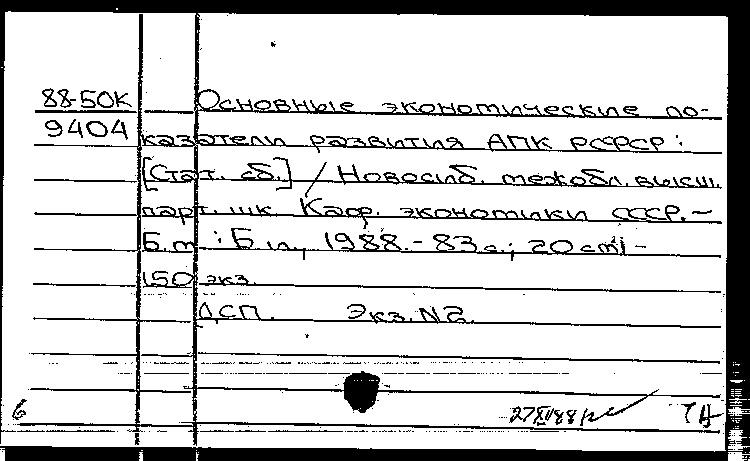 88-50К Основные экономические по-
9404 казатели развития АПК РСФСР :
[Стат. сб.] / Новосиб. межобл. высш.
парт. шк Каф. экономики СССР. ~
Б.м : Б.и., 1988. - 83 с.; 20 cm -
150 экз.
ДСП. Экз. N2.
6 27XII88